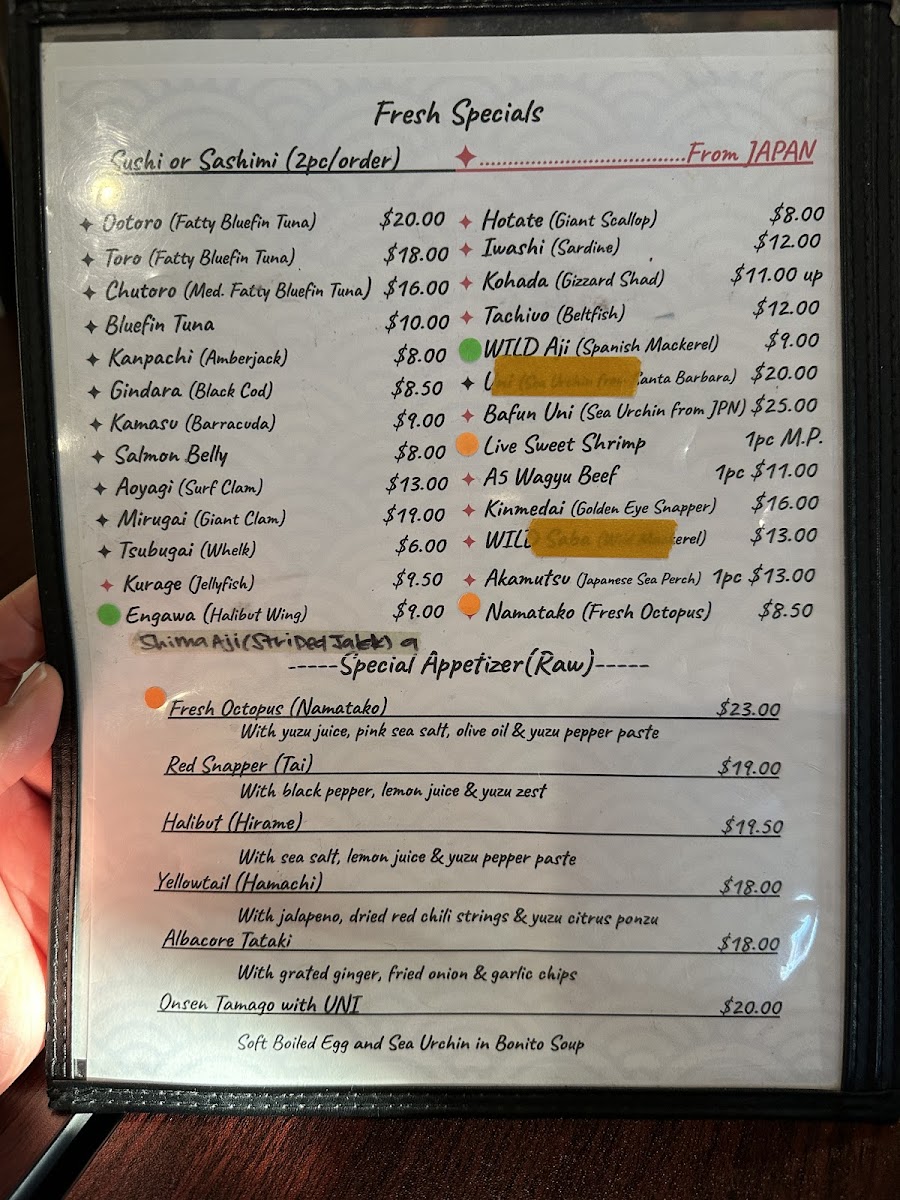 Fresh Specials
Sushi or Sashimi (2pc/order)
From JAPAN
Ootoro (Fatty Bluefin Tuna) $20.00
Toro (Fatty Bluefin Tuna) $18.00
Chutoro (Med. Fatty Bluefin Tuna) $16.00
Bluefin Tuna $10.00
Kanpachi (Amberjack) $8.00
Gindara (Black Cod) $8.50
Kamasu (Barracuda) $9.00
Salmon Belly $8.00
Aoyagi (Surf Clam) $13.00
Mirugai (Giant Clam) $19.00
Tsubugai (Whelk) $6.00
Kurage (Jellyfish) $9.50
Engawa (Halibut Wing) $9.00
Shima Aji (Striped Jack) 9
Hotate (Giant Scallop) $8.00
Iwashi (Sardine) $12.00
Kohada (Gizzard Shad) $11.00 up
Tachiuo (Beltfish) $12.00
WILD Aji (Spanish Mackerel) $9.00
Uni (Sea Urchin from Santa Barbara) $20.00
Bafun Uni (Sea Urchin from JPN) $25.00
Live Sweet Shrimp 1pc M.P.
A5 Wagyu Beef 1pc $11.00
Kinmedai (Golden Eye Snapper) $16.00
WILD Saba (Wild Mackerel) $13.00
Akamutsu (Japanese Sea Perch) 1pc $13.00
Namatako (Fresh Octopus) $8.50
-----Special Appetizer(Raw)-----
Fresh Octopus (Namatako) $23.00
With yuzu juice, pink sea salt, olive oil & yuzu pepper paste
Red Snapper (Tai) $19.00
With black pepper, lemon juice & yuzu zest
Halibut (Hirame) $19.50
With sea salt, lemon juice & yuzu pepper paste
Yellowtail (Hamachi) $18.00
With jalapeno, dried red chili strings & yuzu citrus ponzu
Albacore Tataki $18.00
With grated ginger, fried onion & garlic chips
Onsen Tamago with UNI $20.00
Soft Boiled Egg and Sea Urchin in Bonito Soup